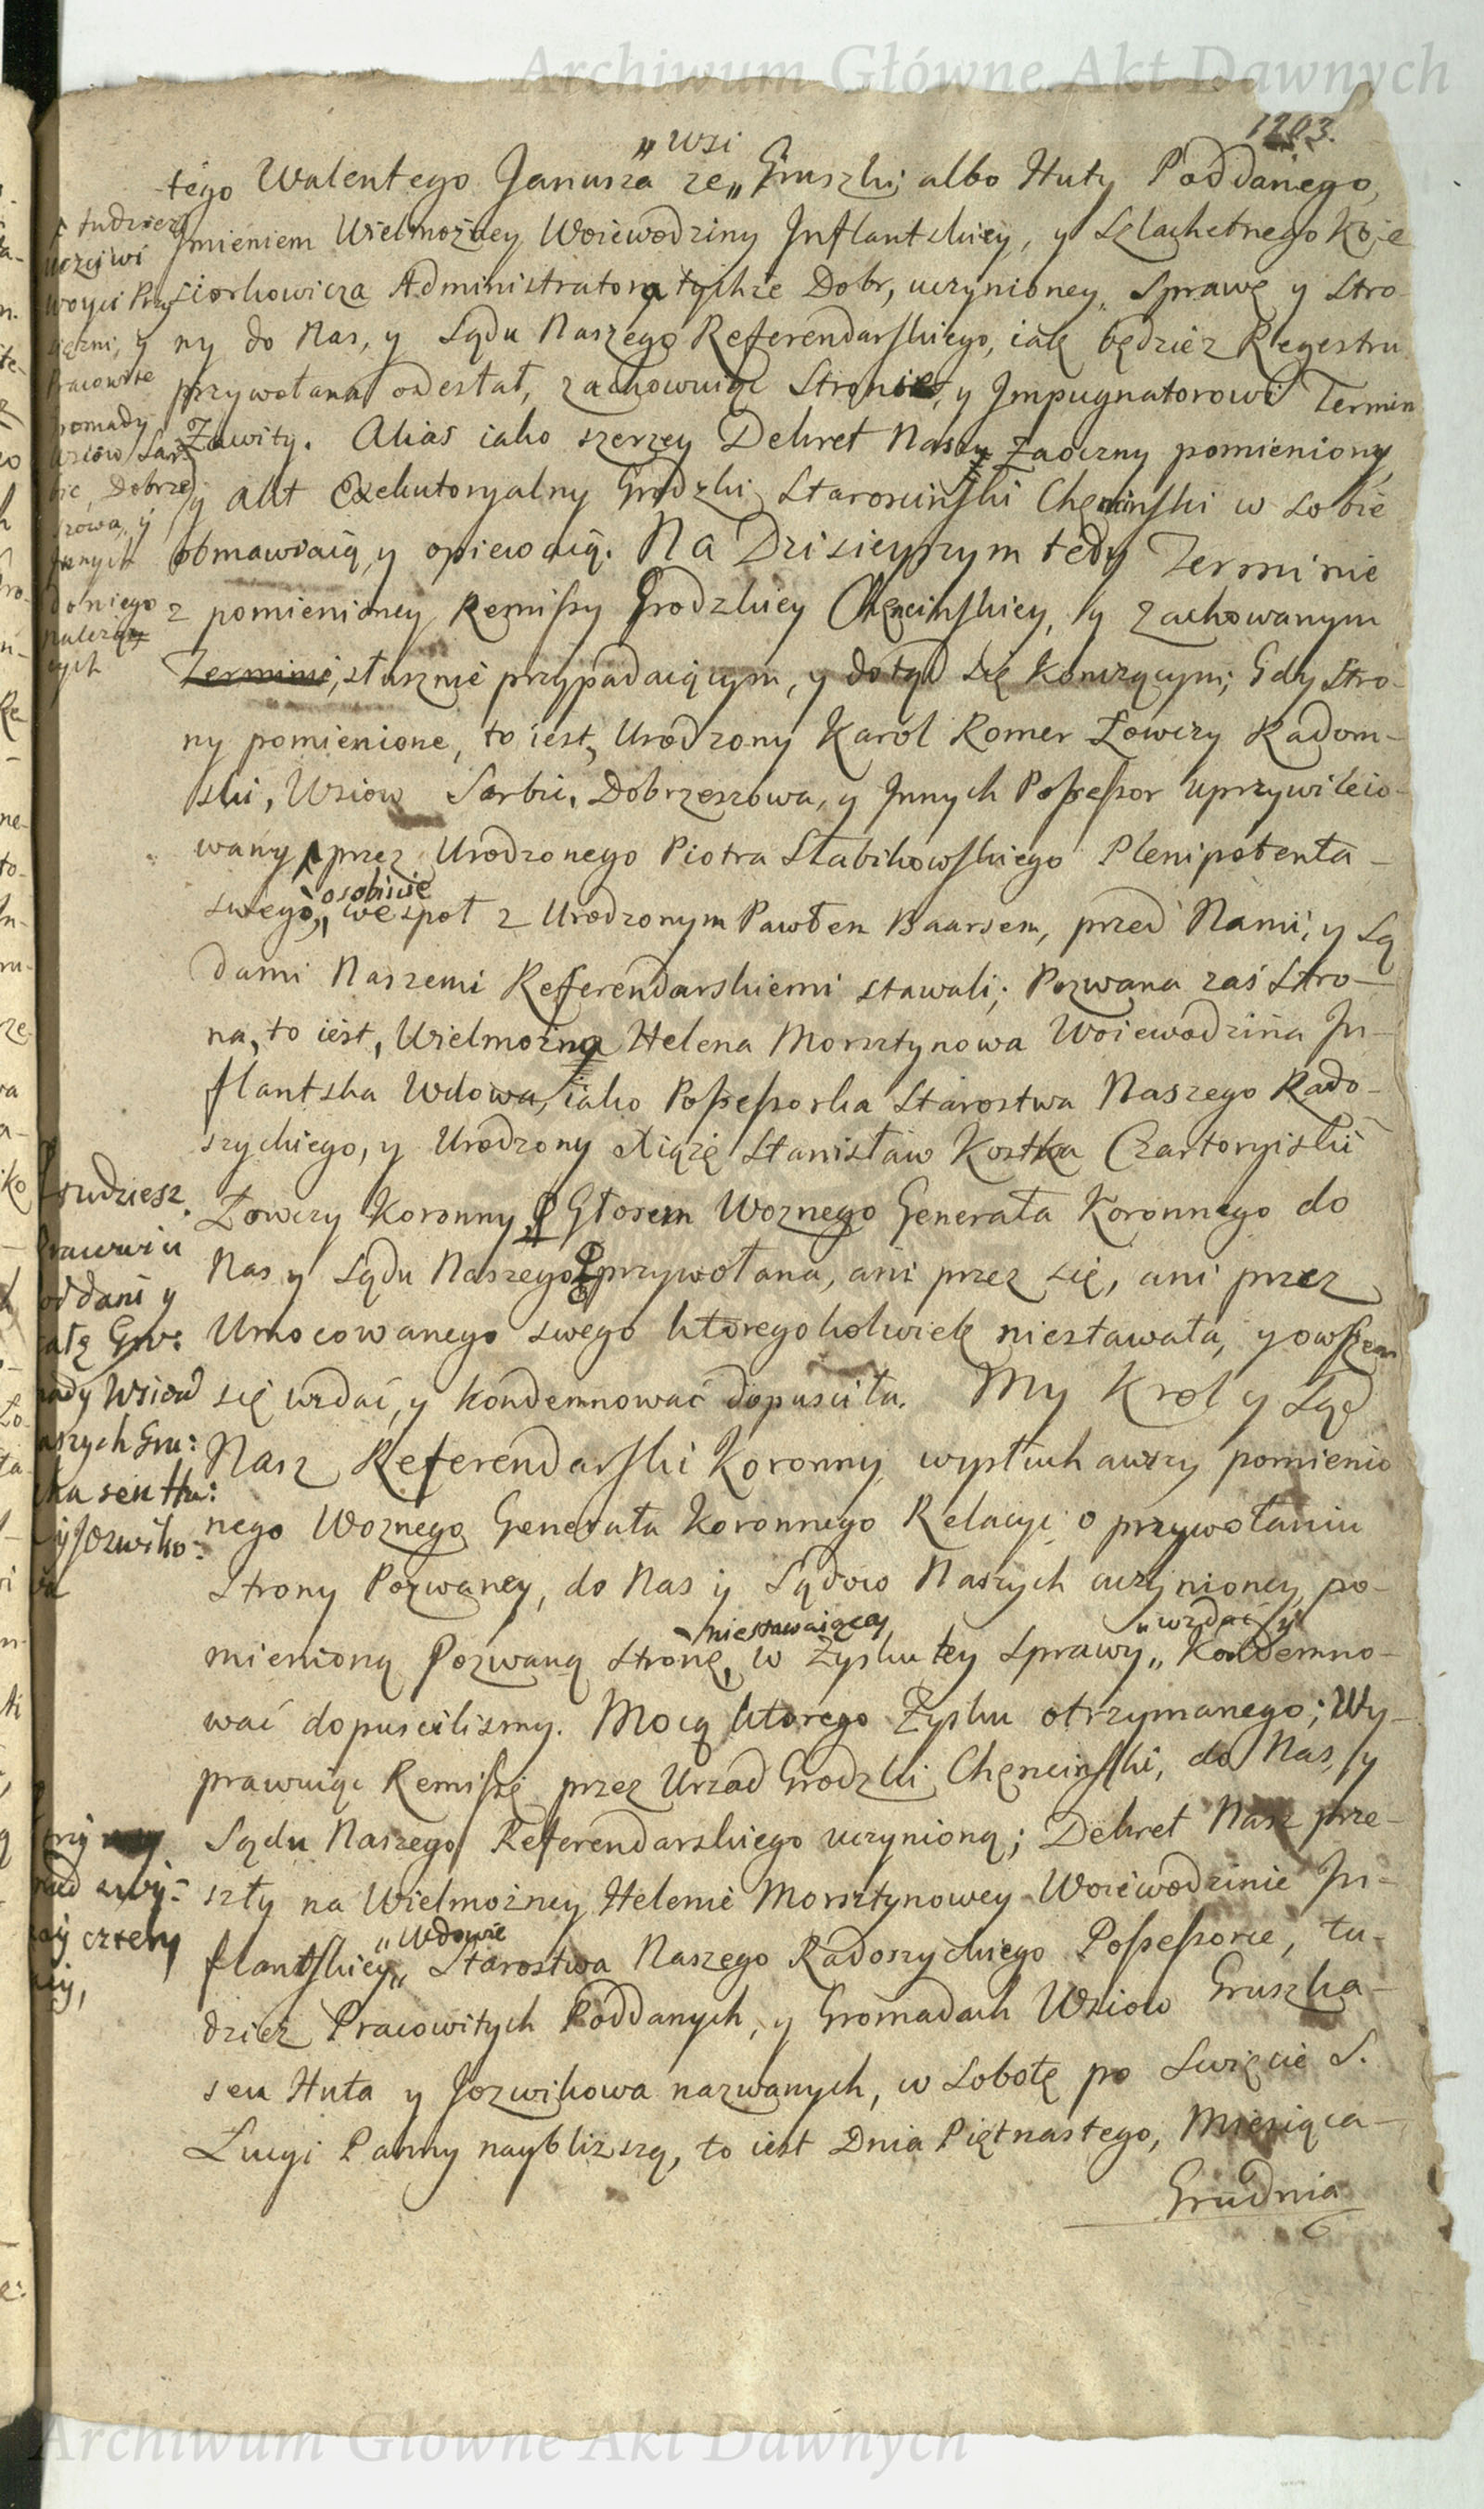 Archiwum Główne Akt Dawnych
1203.
„ wsi
tego Walentego Janusza ze „ Gruszki albo Huty Poddanego,
Jmieniem Wielmożney Woiewodziny Jnflantskiey, y Szlachetnego Koie
siorkowicza Administratora tychże Dobr, uczynioney, Sprawę y Stro-
ny do Nas, y Sądu Naszego Referendarskiego, iak będzie z Regestru
przywołana odesłał, zachowuiąc Stronie, y Jmpugnatorowi Termin
Zawity. Alias iako szerzey Dekret Nasz Zaoczny pomieniony,
y akt Exekutoryalny Grodzki Starosciński Chęciński w sobie
obmawiaią, y opiewaią. Na Dzisieyszym tedy Terminie
z pomienioney Remissy Grodzkiey Chęcinskiey, y zachowanym
Terminie, słusznie przypadaiącym, y dotąd się kończącym; Gdy Stro-
ny pomienione, to iest, Urodzony Karol Romer Łowczy Radom-
ski, Wsiow Sarbic, Dobrzeszowa, y Jnnych Possessor uprzywileio-
wany przez Urodzonego Piotra Słabikowskiego Plenipotenta
osobiscie
swego, „ wespoł z Urodzonym Pawłem Baarsem, przed Nami, y Są
dami Naszemi Referendarskiemi stawali; Pozwana zaś Stro-
na, to iest, Wielmożna Helena Morsztynowa Woiewodzina Jn-
flantska Wdowa, iako Possessorka Starostwa Naszego Rado-
szyckiego, y Urodzony Xiąże Stanisław Kostka Czartoryiski
Łowczy Koronny, Głosem Woznego Generała Koronnego do
Nas y Sądu Naszego przywołana, ani przez się, ani przez
Umocowanego swego ktoregokolwiek niestawała, y owszem
się wzdać, y kondemnować dopuściła. My Krol y Sąd
Nasz Referendarski Koronny wysłuchawszy pomienio
nego Woznego Generała Koronnego Relacyi o przywołaniu
Strony Pozwaney, do Nas y Sądow Naszych uczynioney, po-
niestawaiącą „ wzdać y
mienioną Pozwaną Stronę, w Zysku tey Sprawy „ Kondemno-
wać dopuscilismy. Mocą ktorego Zysku otrzymanego; Wy-
prawuiąc Remissę przez Urzad Grodzki Chęcinski, do Nas, y
Sądu Naszego Referendarskiego uczynioną; Dekret Nasz prze-
szły na Wielmożney Helenie Morsztynowey Woiewodzinie Jn-
„ Wdowie
flantskiey „ Starostwa Naszego Radoszyckiego Possessorce, tu-
dzież Pracowitych Poddanych, y Gromadach Wsiow Gruszka-
seu Huta y Jozwikowa nazwanych, w Sobotę po Swięcie S.
Lucyi Panny naybliższą, to iest Dnia Piętnastego, Miesiąca-
Grudnia
tudzież
uczciwi
woyci Przy
siężni, y
Pracowite
Gromady
Wsiow Sar-
bic, Dobrze
szowa, y
jnnych
do niego
należą
cych
tudziesz
Pracowici
oddani y
całę Gro:
mady Wsiow
naszych Gru:
szka seu Hu:
y Jozwiko:
wa
czten
Archiwum Główne Akt Dawnych